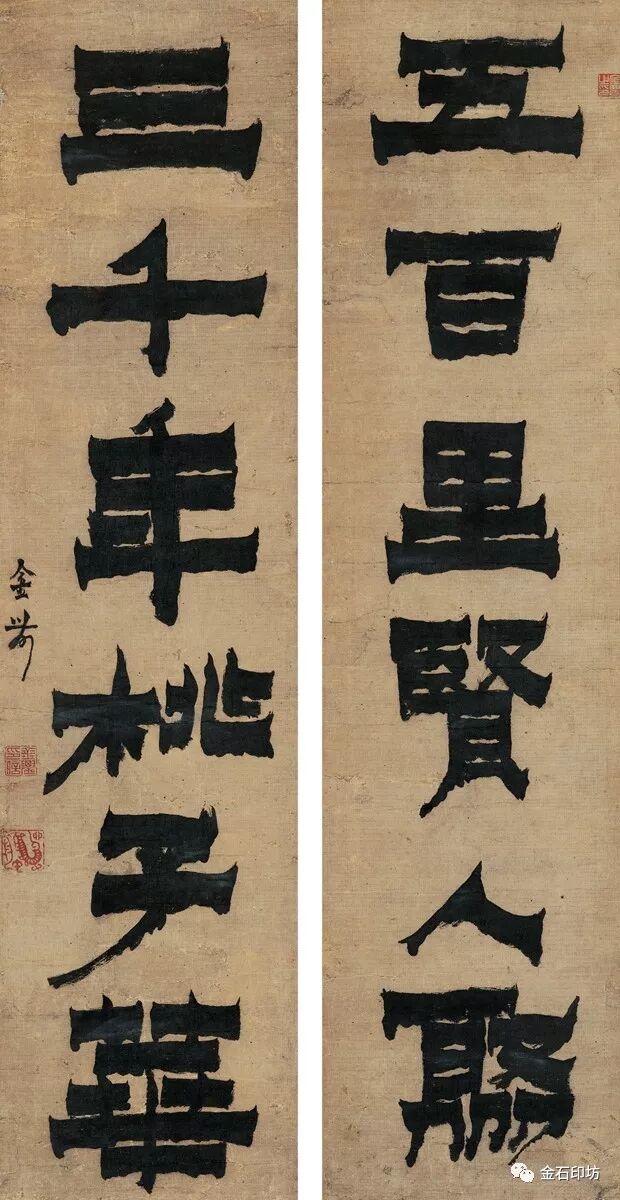 五百里賢人聚
三千年桃子華
金
金石印坊